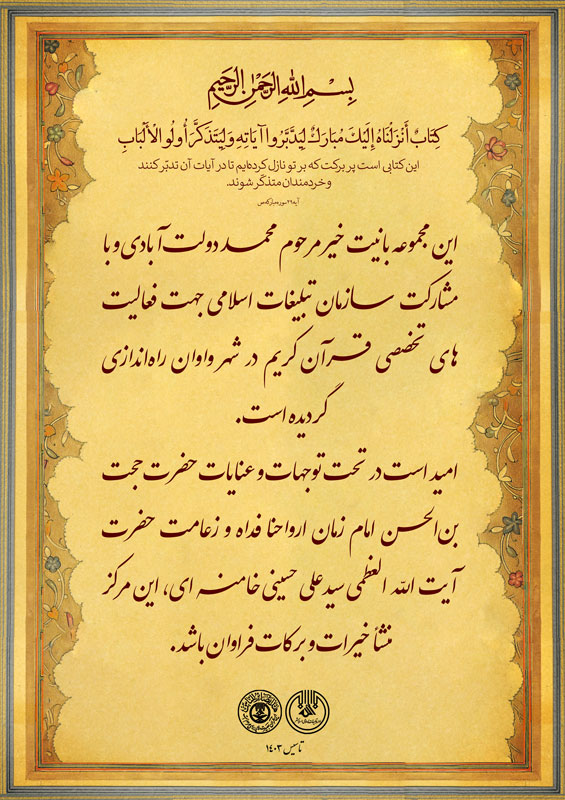 بِسْمِ اللهِ الرَّحْمٰنِ الرَّحِيمِ
كِتَابٌ أَنْزَلْنَاهُ إِلَيْكَ مُبَارَكٌ لِيَدَّبَّرُوا آيَاتِهِ وَلِيَتَذَكَّرَ أُولُو الْأَلْبَابِ
این کتابی است پر برکت که بر تو نازل کرده‌ایم تا در آیات آن تدبّر کنند
و خردمندان متذکّر شوند.
آیه ۲۹ سوره مبارکه ص
این مجموعه با نیت خیر مرحوم محمد دولت آبادی و با
مشارکت سازمان تبلیغات اسلامی جهت فعالیت
های تخصصی قرآن کریم در شهر واوان راه‌اندازی
گردیده است.
امید است در تحت توجهات و عنایات حضرت حجت
بن الحسن امام زمان ارواحنا فداه و زعامت حضرت
آیت الله العظمی سید علی حسینی خامنه ای، این مرکز
منشأ خیرات و برکات فراوان باشد.
تاسیس ۱۴۰۳